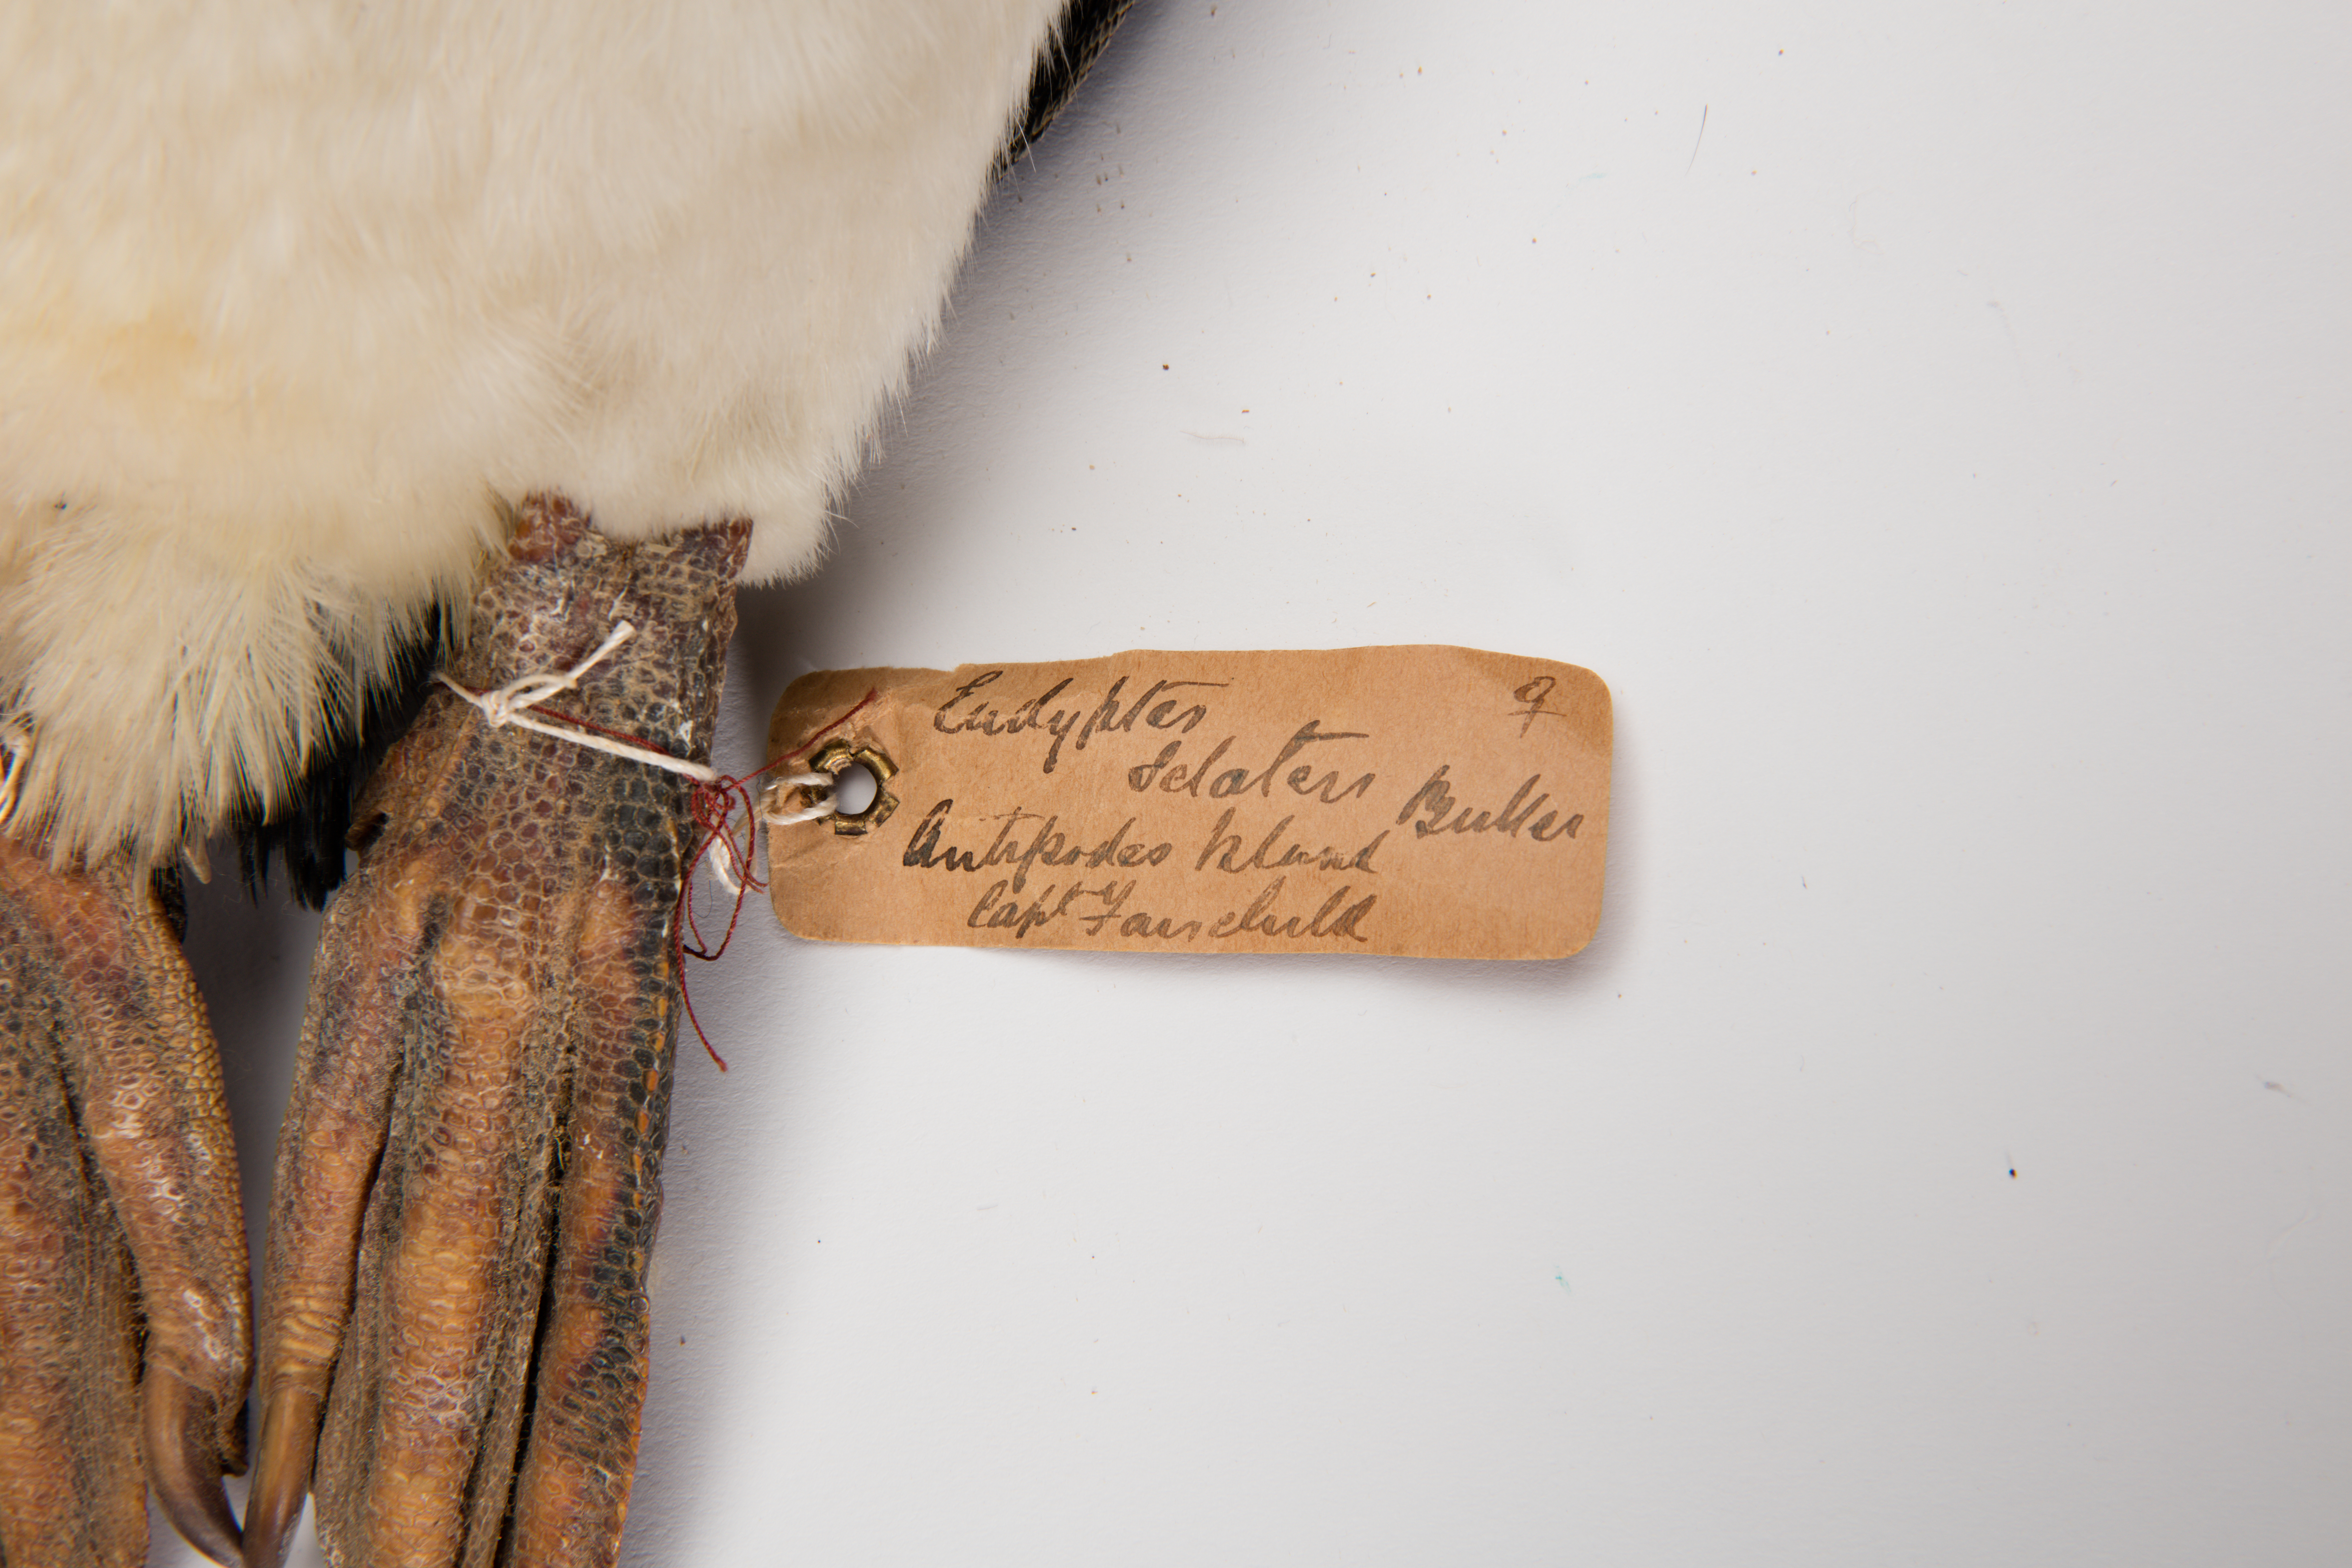 Eudyptes ♀
sclateri Buller
Antipodes Island
Capt Fairchild